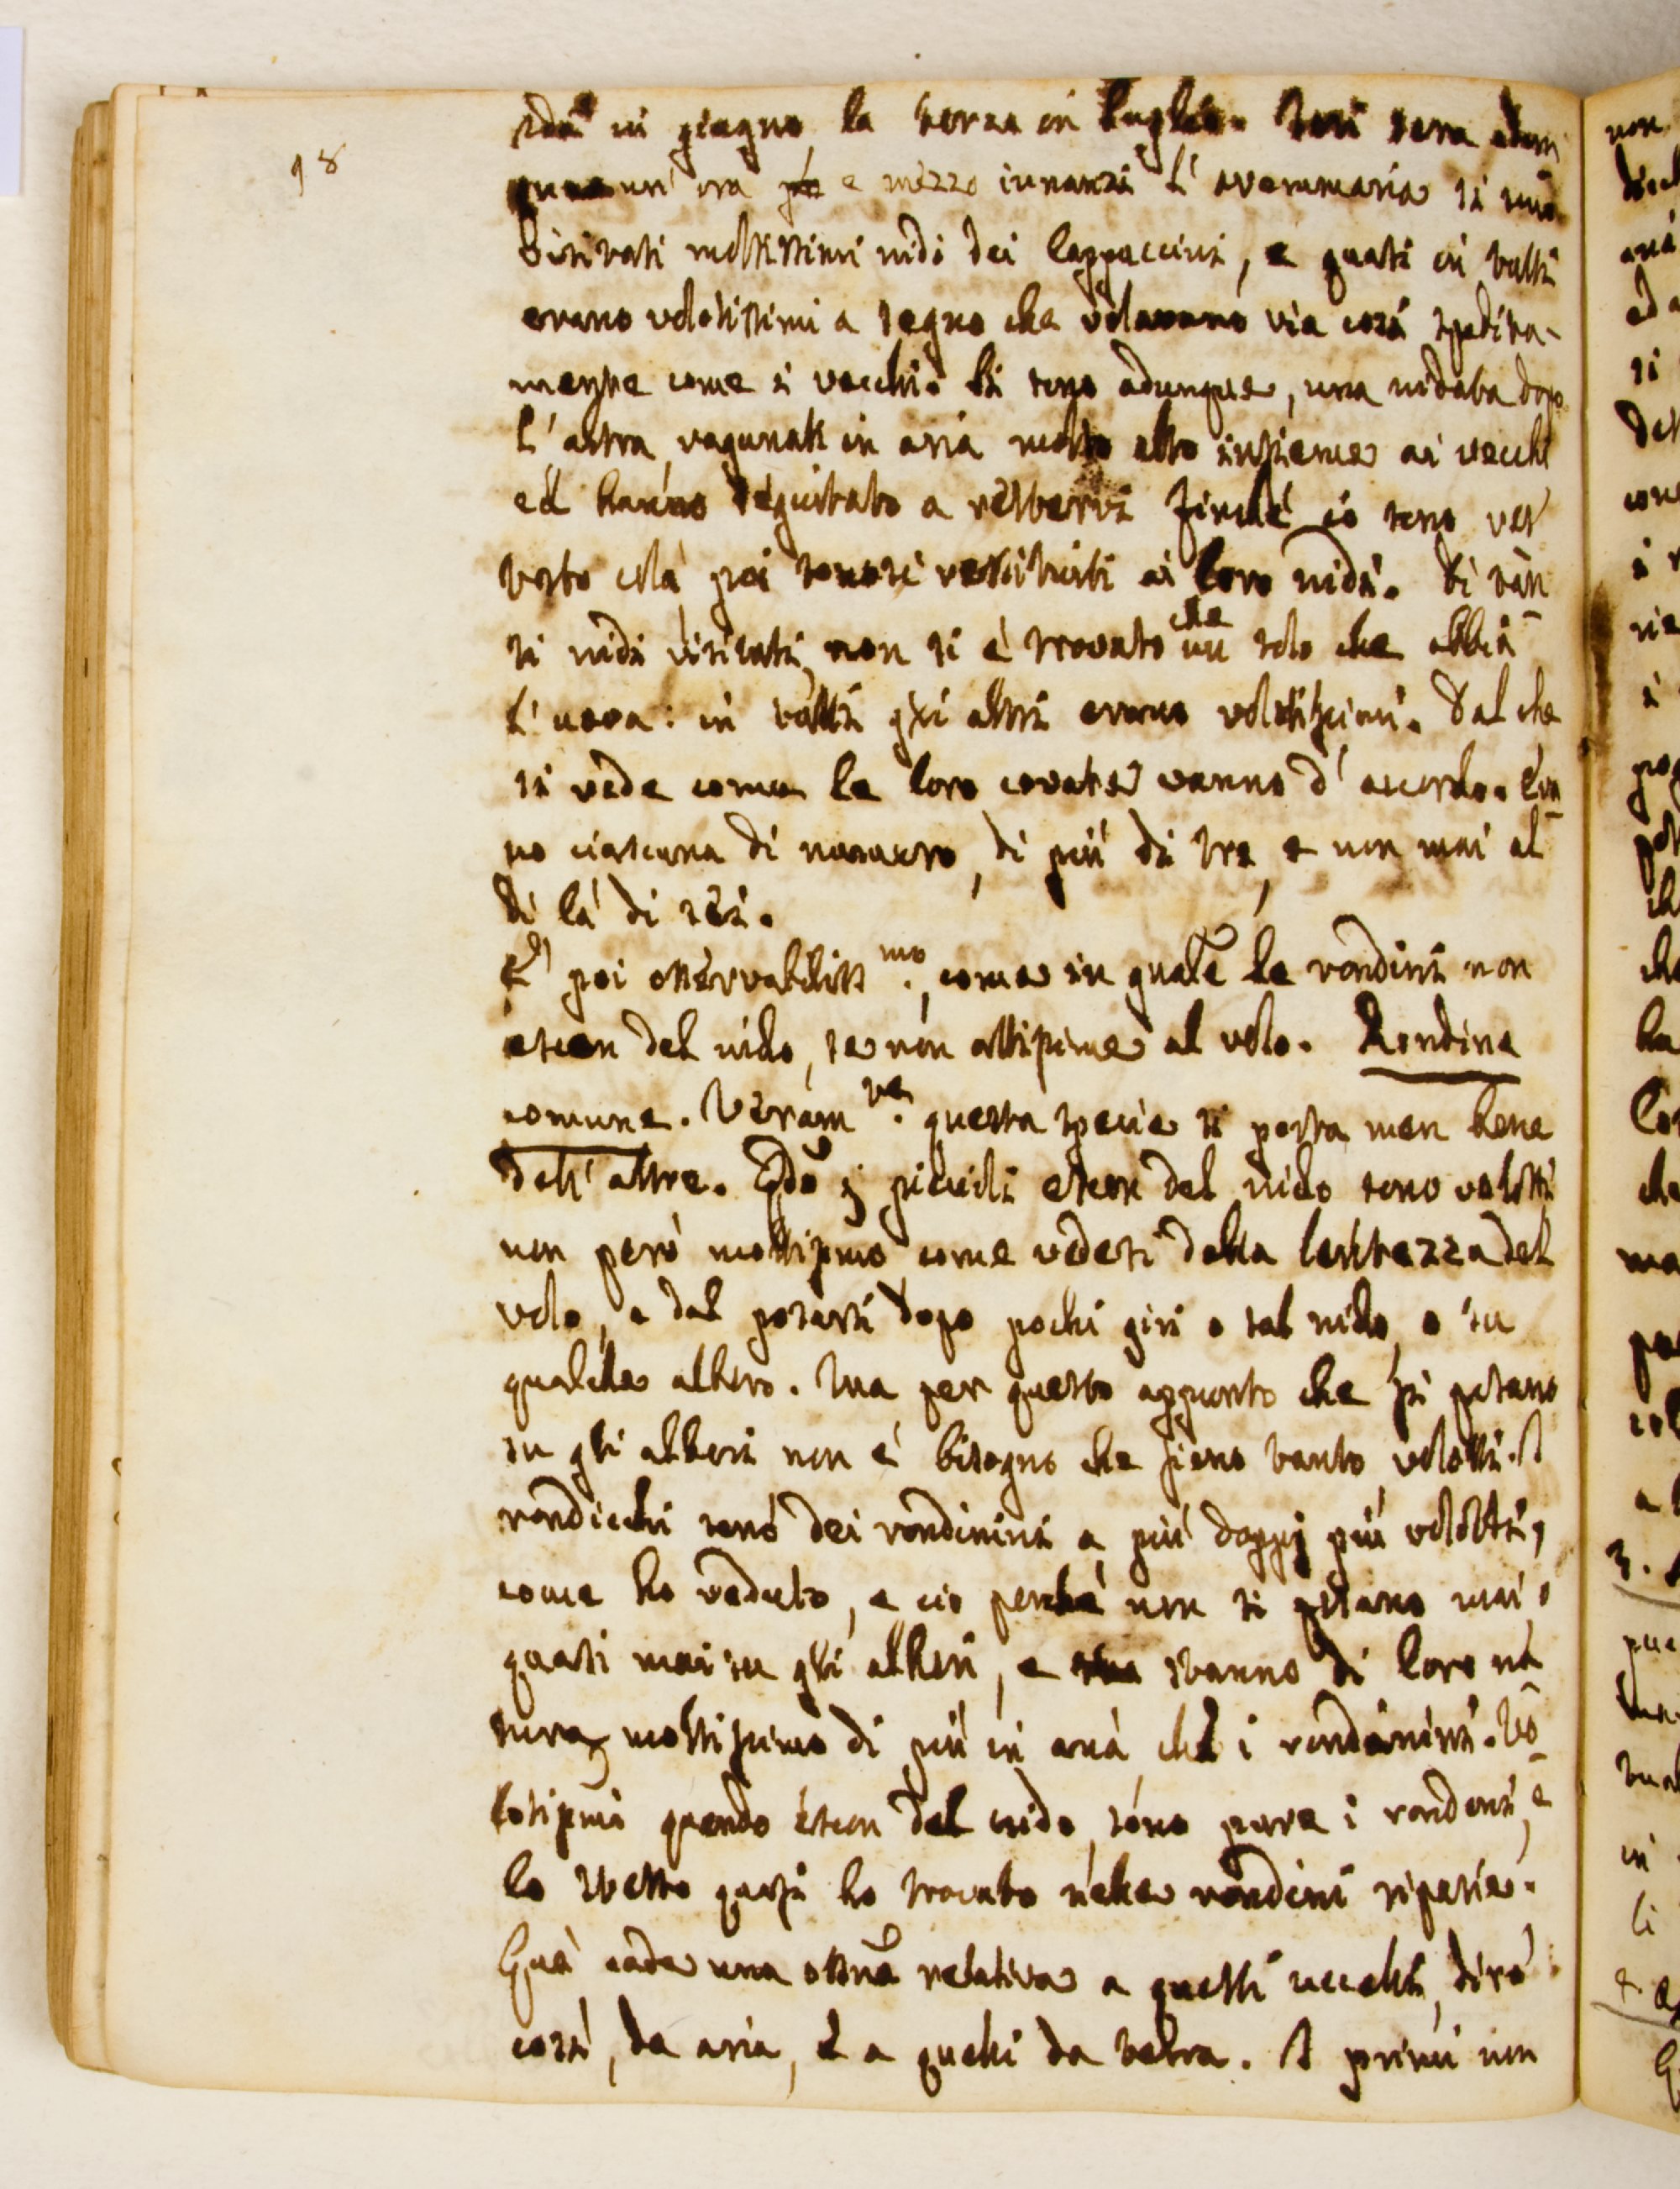 98
in giugno, la terza in luglio. Ieri sera adun
que un' ora e mezzo innanzi l' avemmaria si sono
visitati moltissimi nidi dei Cappuccini, e quasi in tutti
erano volotissimi a segno che volavano via così spedita-
mente come i vecchi. Si sono adunque, una nidata dopo
l' altra, ragunati in aria molto alto insieme ai vecchi
ed hanno seguitato a restarvi finché io sono
stato colà poi sonosi restituiti ai loro nidi. Di tan
ti nidi visitati, non si è trovato che un solo che abbia
l' uova: in tutti gli altri erano volotissimi. Dal che
si vede come le loro covate vanno d' accordo.
no ciascuna di numero, di più di tre, e non mai al
di là di sei.
E' poi osservabiliss.mo, come in quale le rondini non
escon del nido, se non attissime al volo. Rondine
comune. Veram.te questa specie si porta men bene
dell' altre. Qdo i piccioli escon del nido sono volotti
non però moltissimo come vedesi dalla lentezza del
volo, e dal posarsi dopo pochi giri o sul nido, o su
qualche albero. Ma per questo appunto che si posano
su gli alberi non è bisogno che sieno tanto volotti. I
rondicchi sono dei rondinini a più doppj più volotti,
come ho veduto, e cio perché non si posano mai o
quasi mai su gli alberi, e stanno di loro na
tura moltissimo di più in aria che i rondinini. Vo
lotissimi quando escon del nido, sono pure i rondoni, e
lo stesso quasi ho trovato nelle rondini riparie.
Quà cade una ossne relativa a questi uccelli, dirò
così, da aria, e a quelli da terra. I primi non